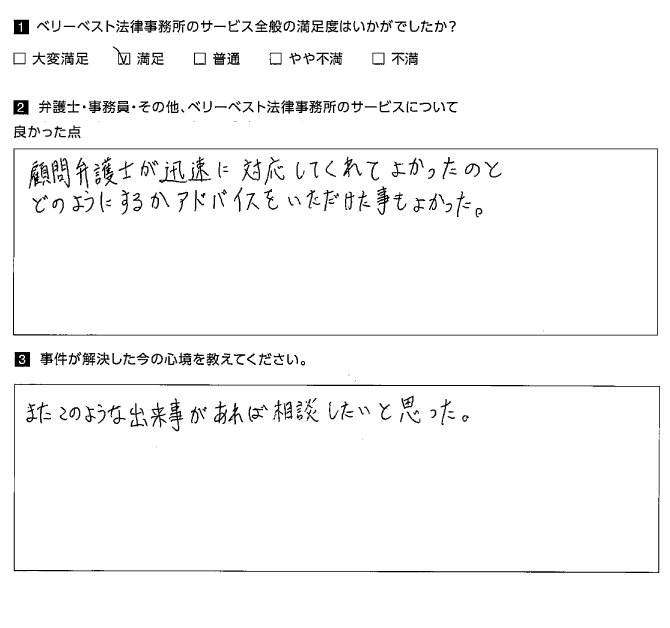 1 ベリーベスト法律事務所のサービス全般の満足度はいかがでしたか？
□ 大変満足 ☑ 満足 □ 普通 □ やや不満 □ 不満
2 弁護士・事務員・その他、ベリーベスト法律事務所のサービスについて
良かった点
顧問弁護士が迅速に対応してくれてよかったのと
どのようにするかアドバイスをいただけた事もよかった。
3 事件が解決した今の心境を教えてください。
またこのような出来事があれば相談したいと思った。